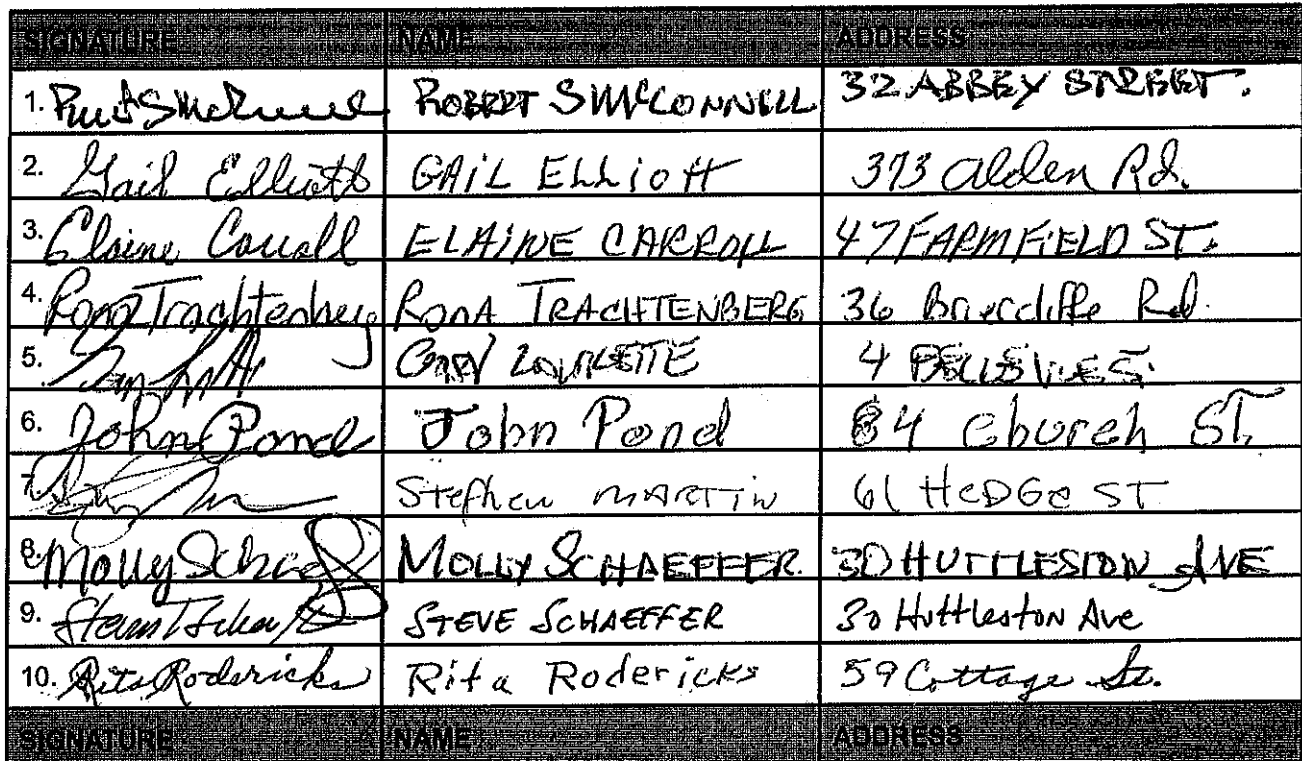 SIGNATURE NAME ADDRESS
1. ROBERT S McCONNELL 32 ABBEY STREET.
2. Gail Elliott GAIL ELLIOTT 373 Alden Rd.
3. Elaine Carroll ELAINE CARROLL 47 FARMFIELD ST.
4. Rona Trachtenberg RONA TRACHTENBERG 36 Briercliffe Rd.
5. GARY 4
6. John Pond John Pond 64 Church St.
7. Stephen MARTIN 61 HEDGE ST
8. Molly Schaeffer MOLLY SCHAEFFER 30 HUTTLESTON AVE
9. STEVE SCHAEFFER 30 Huttleston Ave
10. Rita Rodericks Rita Rodericks 59 Cottage St.
SIGNATURE NAME ADDRESS